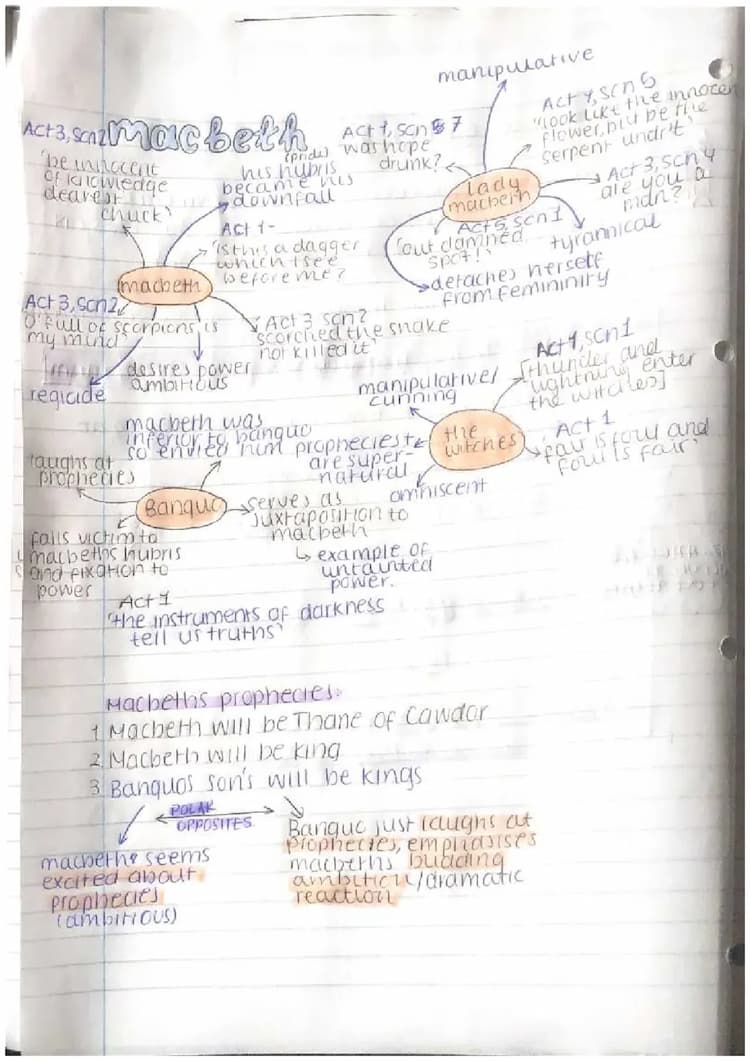 macbeth
Act 3, scn2
'be innocent
of knowledge
dearest
chuck'
(pride)
his hubris
became his
downfall
Act 1-
'is this a dagger
which I see
before me?
macbeth
Act 3, scn2
O'full of scorpions is
my mind'
Act 3 scn2
scorched the snake
not killed it'
desires power
ambitious
regicide
manipulative
Act 1, scn 7
was hope
drunk?
Act 1, scn 5
'look like the innocen
flower, but be the
serpent undr't'
lady
macbeth
Act 3, scn 4
are you a
man?
Act 5, scn 1
'out damned
spot!'
tyrannical
detaches herself
from femininiry
the
witches
Act 1, scn1
[thunder and
lightning enter
the witches]
manipulative/
cunning
Act 1
'fair is foul and
foul is fair'
prophecies
are super-
natural
omniscent
macbeth was
inferior to banquo
so envied him
laughs at
prophecies
Banquo
serves as
juxtaposition to
macbeth
↳ example of
untainted
power.
falls victim to
macbeths hubris
and fixation to
power
Act 1
'the instruments of darkness
tell us truths'
Macbeths prophecies:
1 Macbeth will be Thane of Cawdor
2 Macbeth will be king
3 Banquos son's will be kings
POLAR
OPPOSITES
macbeth seems
excited about
prophecies
(ambitious)
Banquo just laughs at
prophecies, emphasises
macbeths budding
ambition/dramatic
reaction